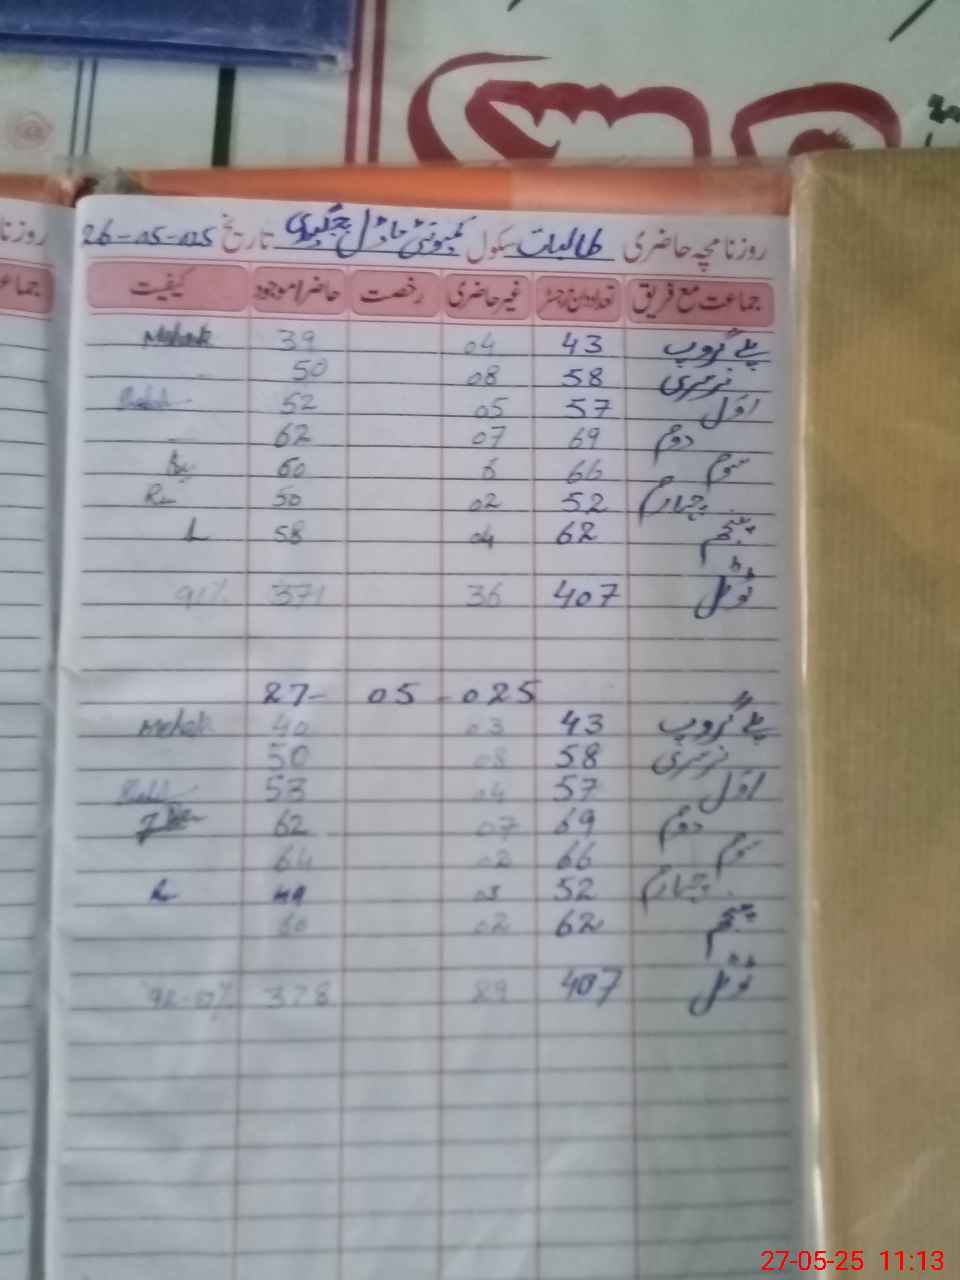 روزنامچہ حاضری طالبات سکول کمیونٹی ماڈل تاریخ 26-05-025
جماعت مع فریق تعداد مندرجہ رجسٹر غیر حاضری رخصت حاضر/موجود کیفیت
پلے گروپ 43 04 39 Mehak
نرسری 58 08 50
اول 57 05 52
دوم 69 07 62
سوم 66 6 60
چہارم 52 02 50
پنجم 62 04 58
ٹوٹل 407 36 371 91%
27-05-025
پلے گروپ 43 03 40 Mehak
نرسری 58 08 50
اول 57 04 53
دوم 69 07 62
سوم 66 02 64
چہارم 52 03 49
پنجم 62 02 60
ٹوٹل 407 378
روزنا
جماع
27-05-25 11:13